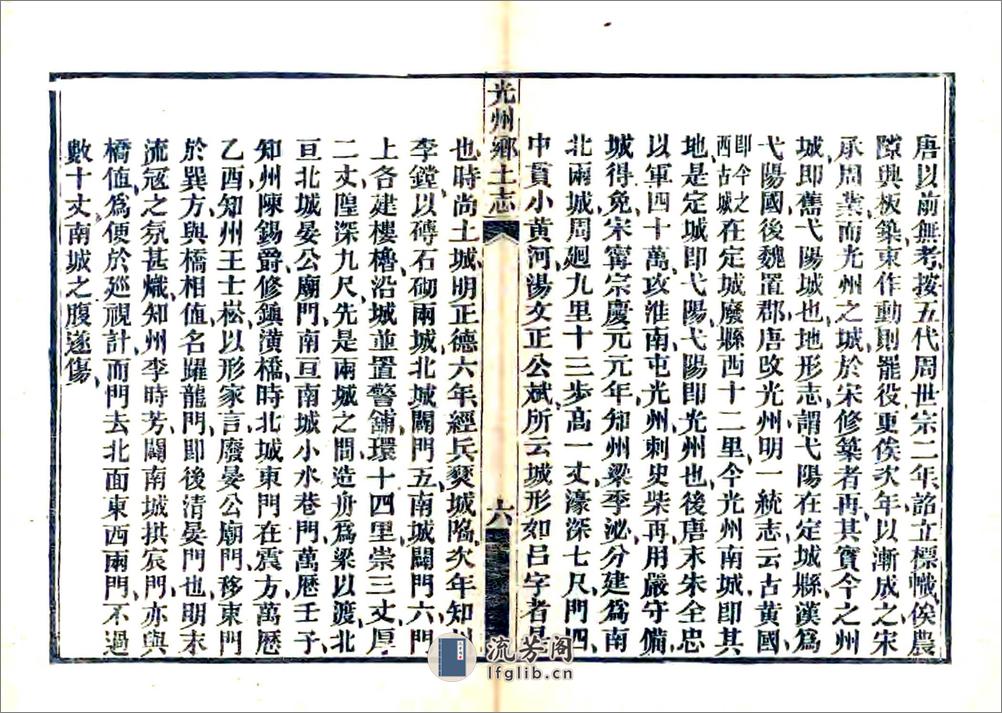 唐以前無考按五代周世宗二年詔立標幟俟農
隙興板築東作動則罷役更俟次年以漸成之宋
承周業而光州之城於宋修築者再其實今之州
城即舊弋陽城也地形志謂弋陽在定城縣漢為
弋陽國後魏置郡唐改光州明一統志云古黃國
即今之西古城在定城廢縣西十二里今光州南城即其
地是定城即弋陽弋陽即光州也後唐末朱全忠
以軍四十萬攻淮南屯光州刺史柴再用嚴守備
城得免宋寧宗慶元元年知州梁季泌分建為南
北兩城周廻九里十三步高一丈濠深七尺門四
中貫小黃河湯文正公斌所云城形如呂字者是
光州鄉土志
六
也時尚土城明正德六年經兵燹城陷次年知州
李鏜以磚石砌兩城北城闢門五南城闢門六門
上各建樓櫓沿城並置警鋪環十四里崇三丈厚
二丈隍深九尺先是兩城之間造舟為梁以渡北
亘北城晏公廟門南亘南城小水巷門萬歷壬子
知州陳錫爵修鎮潢橋時北城東門在震方萬歷
乙酉知州王士崧以形家言廢晏公廟門移東門
於巽方與橋相值名躍龍門即後清晏門也明末
流冦之氛甚熾知州李時芳闢南城拱宸門亦與
橋值為便於廵視計而門去北面東西兩門不過
數十丈南城之腹遂傷
流芳阁
lfglib.cn